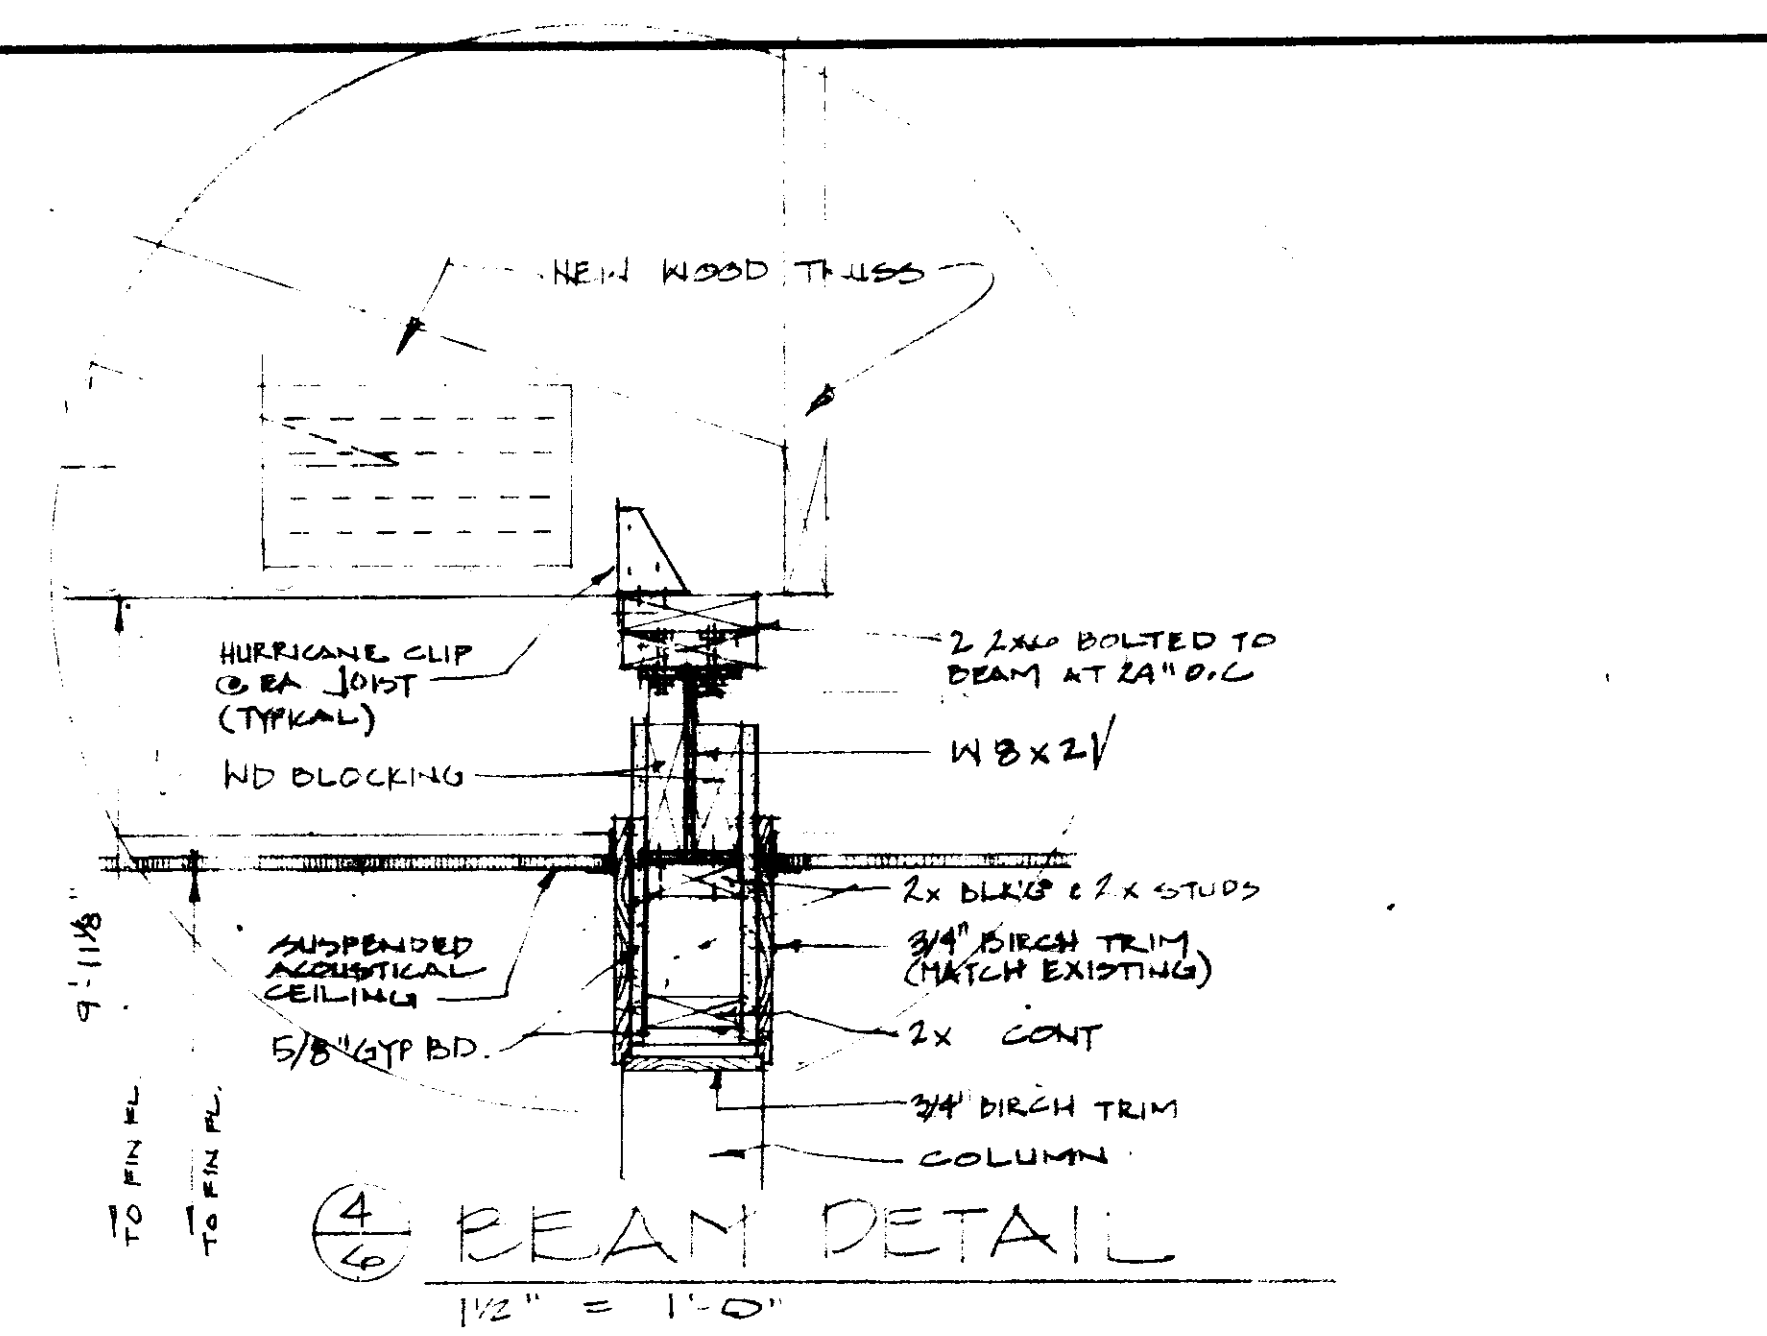 NEW WOOD TRUSS
HURRICANE CLIP
@ EA JOIST
(TYPICAL)
2 2x6 BOLTED TO
BEAM AT 24" O.C
WD BLOCKING
W 8 x 21
2x BLK'G & 2x STUDS
SUSPENDED
ACOUSTICAL
CEILING
3/4" BIRCH TRIM
(MATCH EXISTING)
5/8" GYP BD.
2x CONT
3/4" BIRCH TRIM
COLUMN
9'-11 1/8"
TO FIN FL
TO FIN FL.
4
6
BEAM DETAIL
1 1/2" = 1'-0"